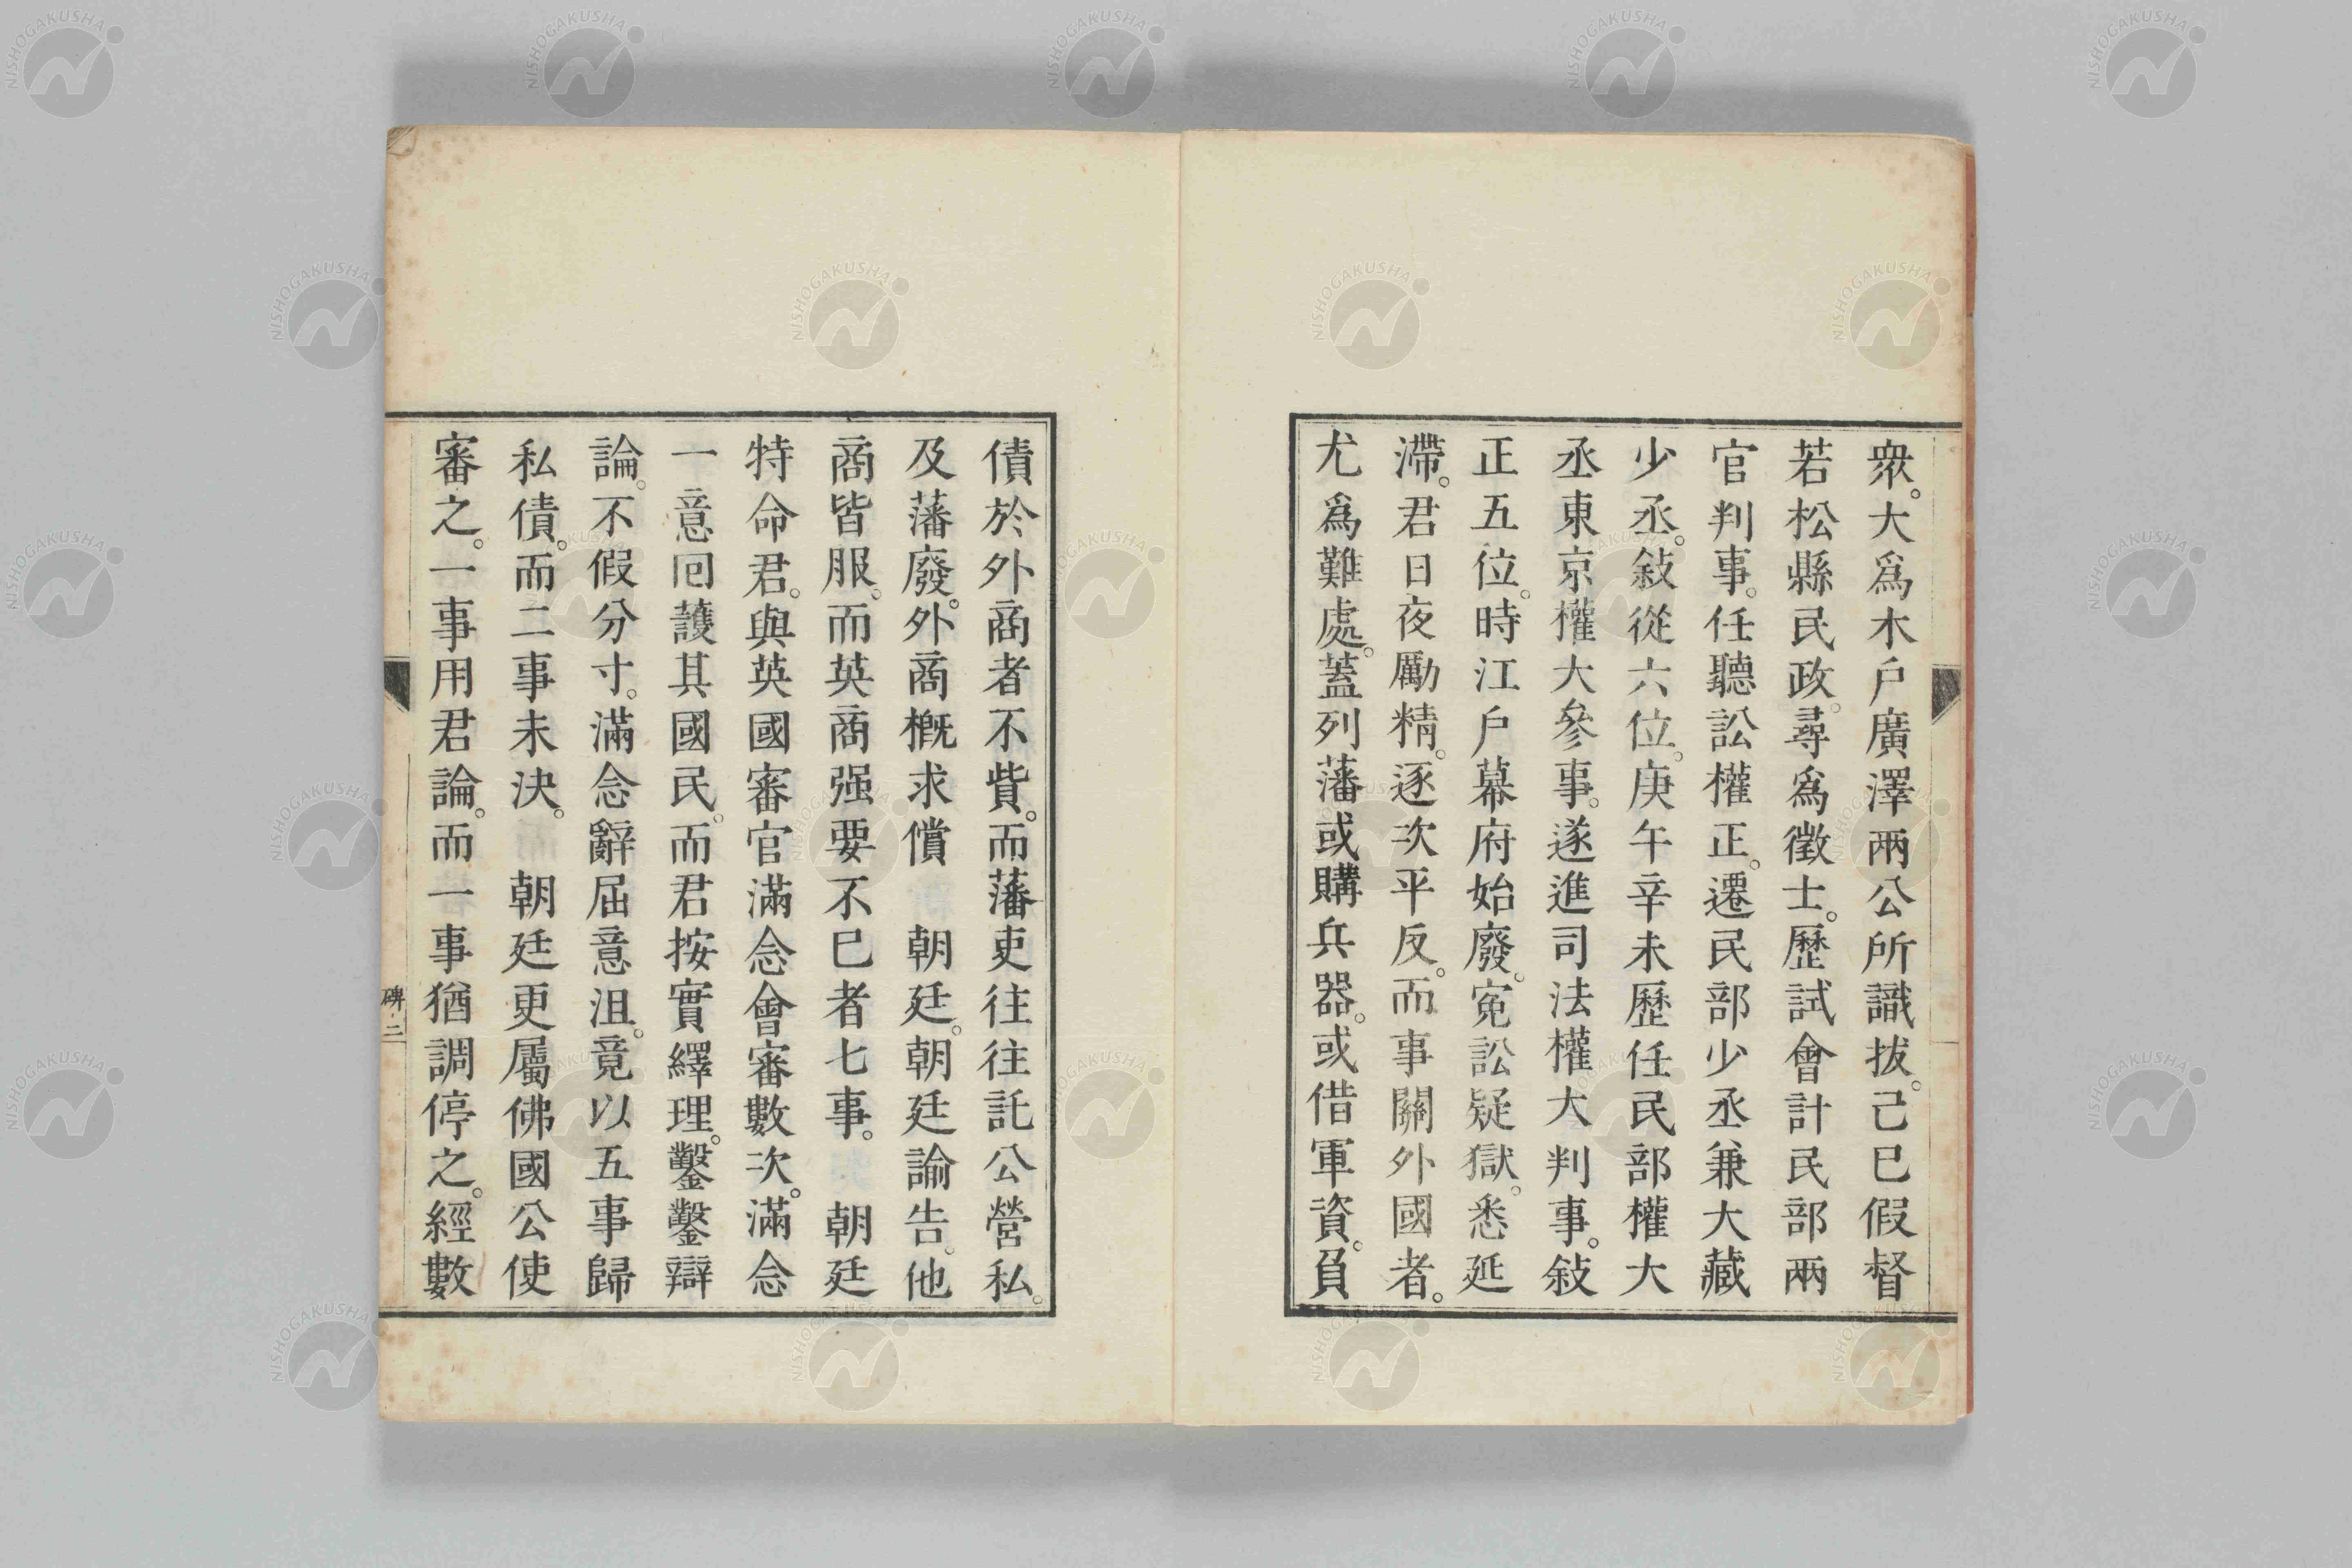 衆。大爲木戶廣澤兩公所識拔。己巳假督
若松縣民政。尋爲徵士。歷試會計民部兩
官判事。任聽訟權正。遷民部少丞兼大藏
少丞。敍從六位。庚午辛未歷任民部權大
丞東京權大參事。遂進司法權大判事。敍
正五位。時江戶幕府始廢。寃訟疑獄。悉延
滯。君日夜勵精。逐次平反。而事關外國者。
尤爲難處。蓋列藩或購兵器。或借軍資。負
債於外商者不貲。而藩吏往往託公營私。
及藩廢。外商槪求償 朝廷。朝廷諭告。他
商皆服。而英商强要不已者七事。 朝廷
特命君。與英國審官滿念會審數次。滿念
一意囘護其國民。而君按實繹理。鑿鑿辯
論。不假分寸。滿念辭屈意沮。竟以五事歸
私債。而二事未決。 朝廷更屬佛國公使
審之。一事用君論。而一事猶調停之。經數
碑・二
NISHOGAKUSHA